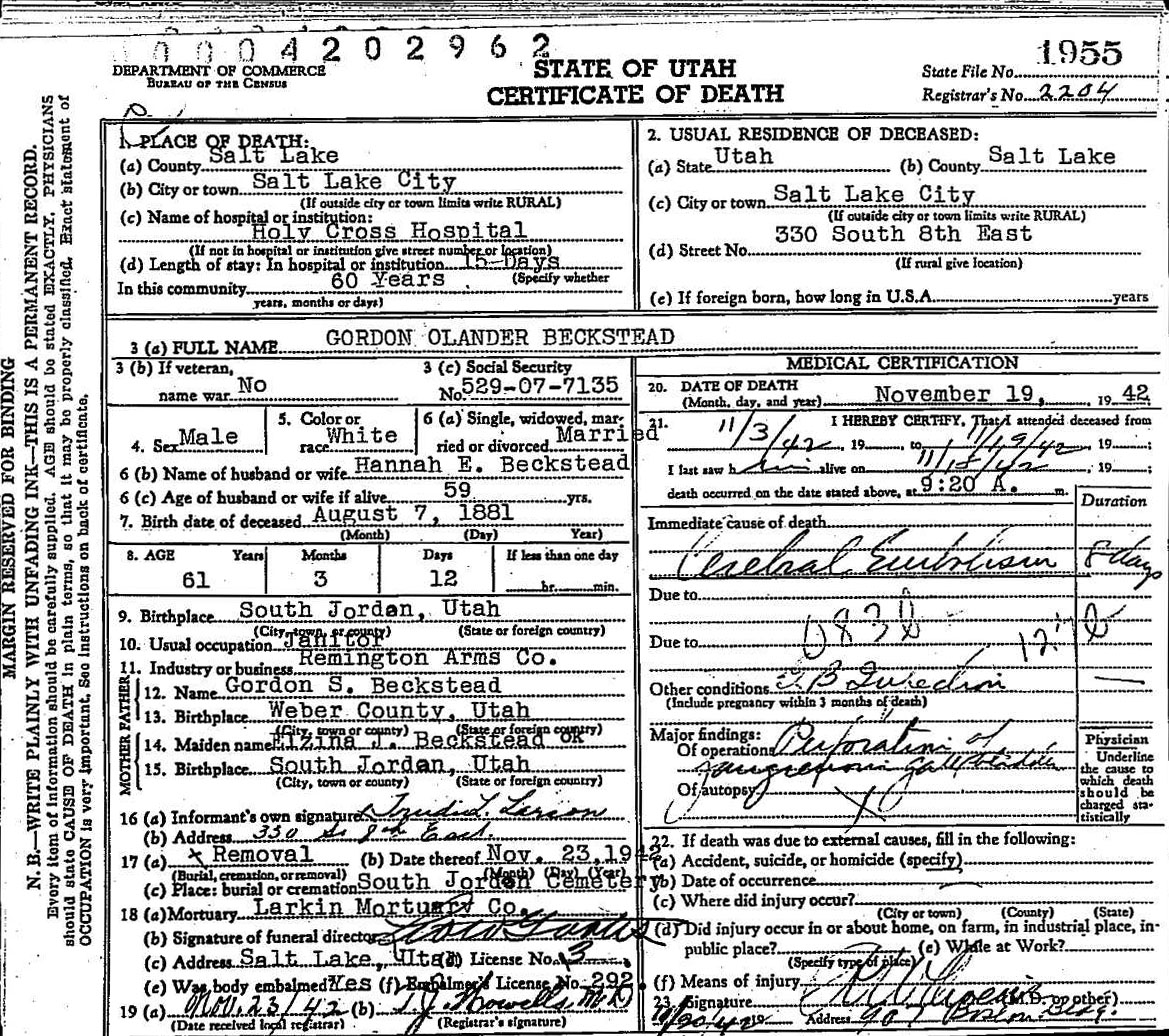 0 0 0 4 2 0 2 9 6 2
DEPARTMENT OF COMMERCE
BUREAU OF THE CENSUS
STATE OF UTAH
CERTIFICATE OF DEATH
State File No. 1955
Registrar's No. 2204
MARGIN RESERVED FOR BINDING
N. B.—WRITE PLAINLY WITH UNFADING INK—THIS IS A PERMANENT RECORD.
Every item of information should be carefully supplied. AGE should be stated EXACTLY. PHYSICIANS
should state CAUSE OF DEATH in plain terms, so that it may be properly classified. Exact statement of
OCCUPATION is very important. See instructions on back of certificate.
1. PLACE OF DEATH:
(a) County Salt Lake
(b) City or town Salt Lake City
(If outside city or town limits write RURAL)
(c) Name of hospital or institution:
Holy Cross Hospital
(If not in hospital or institution give street number or location)
(d) Length of stay: In hospital or institution 15 Days
(Specify whether
In this community 60 Years
years, months or days)
2. USUAL RESIDENCE OF DECEASED:
(a) State Utah (b) County Salt Lake
(c) City or town Salt Lake City
(If outside city or town limits write RURAL)
(d) Street No. 330 South 8th East
(If rural give location)
(e) If foreign born, how long in U.S.A. years
3 (a) FULL NAME GORDON OLANDER BECKSTEAD
3 (b) If veteran,
name war No
3 (c) Social Security
No. 529-07-7135
4. Sex Male
5. Color or
race White
6 (a) Single, widowed, mar-
ried or divorced Married
6 (b) Name of husband or wife Hannah E. Beckstead
6 (c) Age of husband or wife if alive 59 yrs.
7. Birth date of deceased August 7, 1881
(Month) (Day) Year)
8. AGE Years Months Days If less than one day
61 3 12 hr. min.
9. Birthplace South Jordan, Utah
(City, town, or county) (State or foreign country)
10. Usual occupation Janitor
11. Industry or business Remington Arms Co.
FATHER
12. Name Gordon S. Beckstead
13. Birthplace Weber County, Utah
(City, town or county) (State or foreign country)
MOTHER
14. Maiden name Elzina J. Beckstead OK
15. Birthplace South Jordan, Utah
(City, town or county) (State or foreign country)
16 (a) Informant's own signature Larson
(b) Address 330 So 8th East
17 (a) x Removal (b) Date thereof Nov. 23, 1942
(Burial, cremation, or removal) (Month) (Day) (Year)
(c) Place: burial or cremation South Jordan Cemetery
18 (a) Mortuary Larkin Mortuary Co.
(b) Signature of funeral director
(c) Address Salt Lake, Utah (d) License No. 13
(e) Was body embalmed Yes (f) Embalmer's License No. 292.
19 (a) Nov. 23/42 (b) Howells M D
(Date received local registrar) (Registrar's signature)
MEDICAL CERTIFICATION
20. DATE OF DEATH
(Month, day, and year) November 19, 19 42
21. I HEREBY CERTIFY, That I attended deceased from
11/3/42, 19 to 11/19/42, 19 ;
I last saw h im alive on 11/15/42, 19 ;
death occurred on the date stated above, at 9:20 A. m.
Duration
Immediate cause of death
Cerebral Embolism 8 days
Due to
083b
Due to
Other conditions
(Include pregnancy within 3 months of death)
Major findings:
Of operations Perforation of
gangrenous gall bladder
Of autopsy
Physician
Underline
the cause to
which death
should be
charged sta-
tistically
22. If death was due to external causes, fill in the following:
(a) Accident, suicide, or homicide (specify)
(b) Date of occurrence
(c) Where did injury occur?
(City or town) (County) (State)
(d) Did injury occur in or about home, on farm, in industrial place, in-
public place? (e) While at Work?
(Specify type of place)
(f) Means of injury
23. Signature (M.D. or other)
11/20/42 19 Address 907 Boston Bldg.